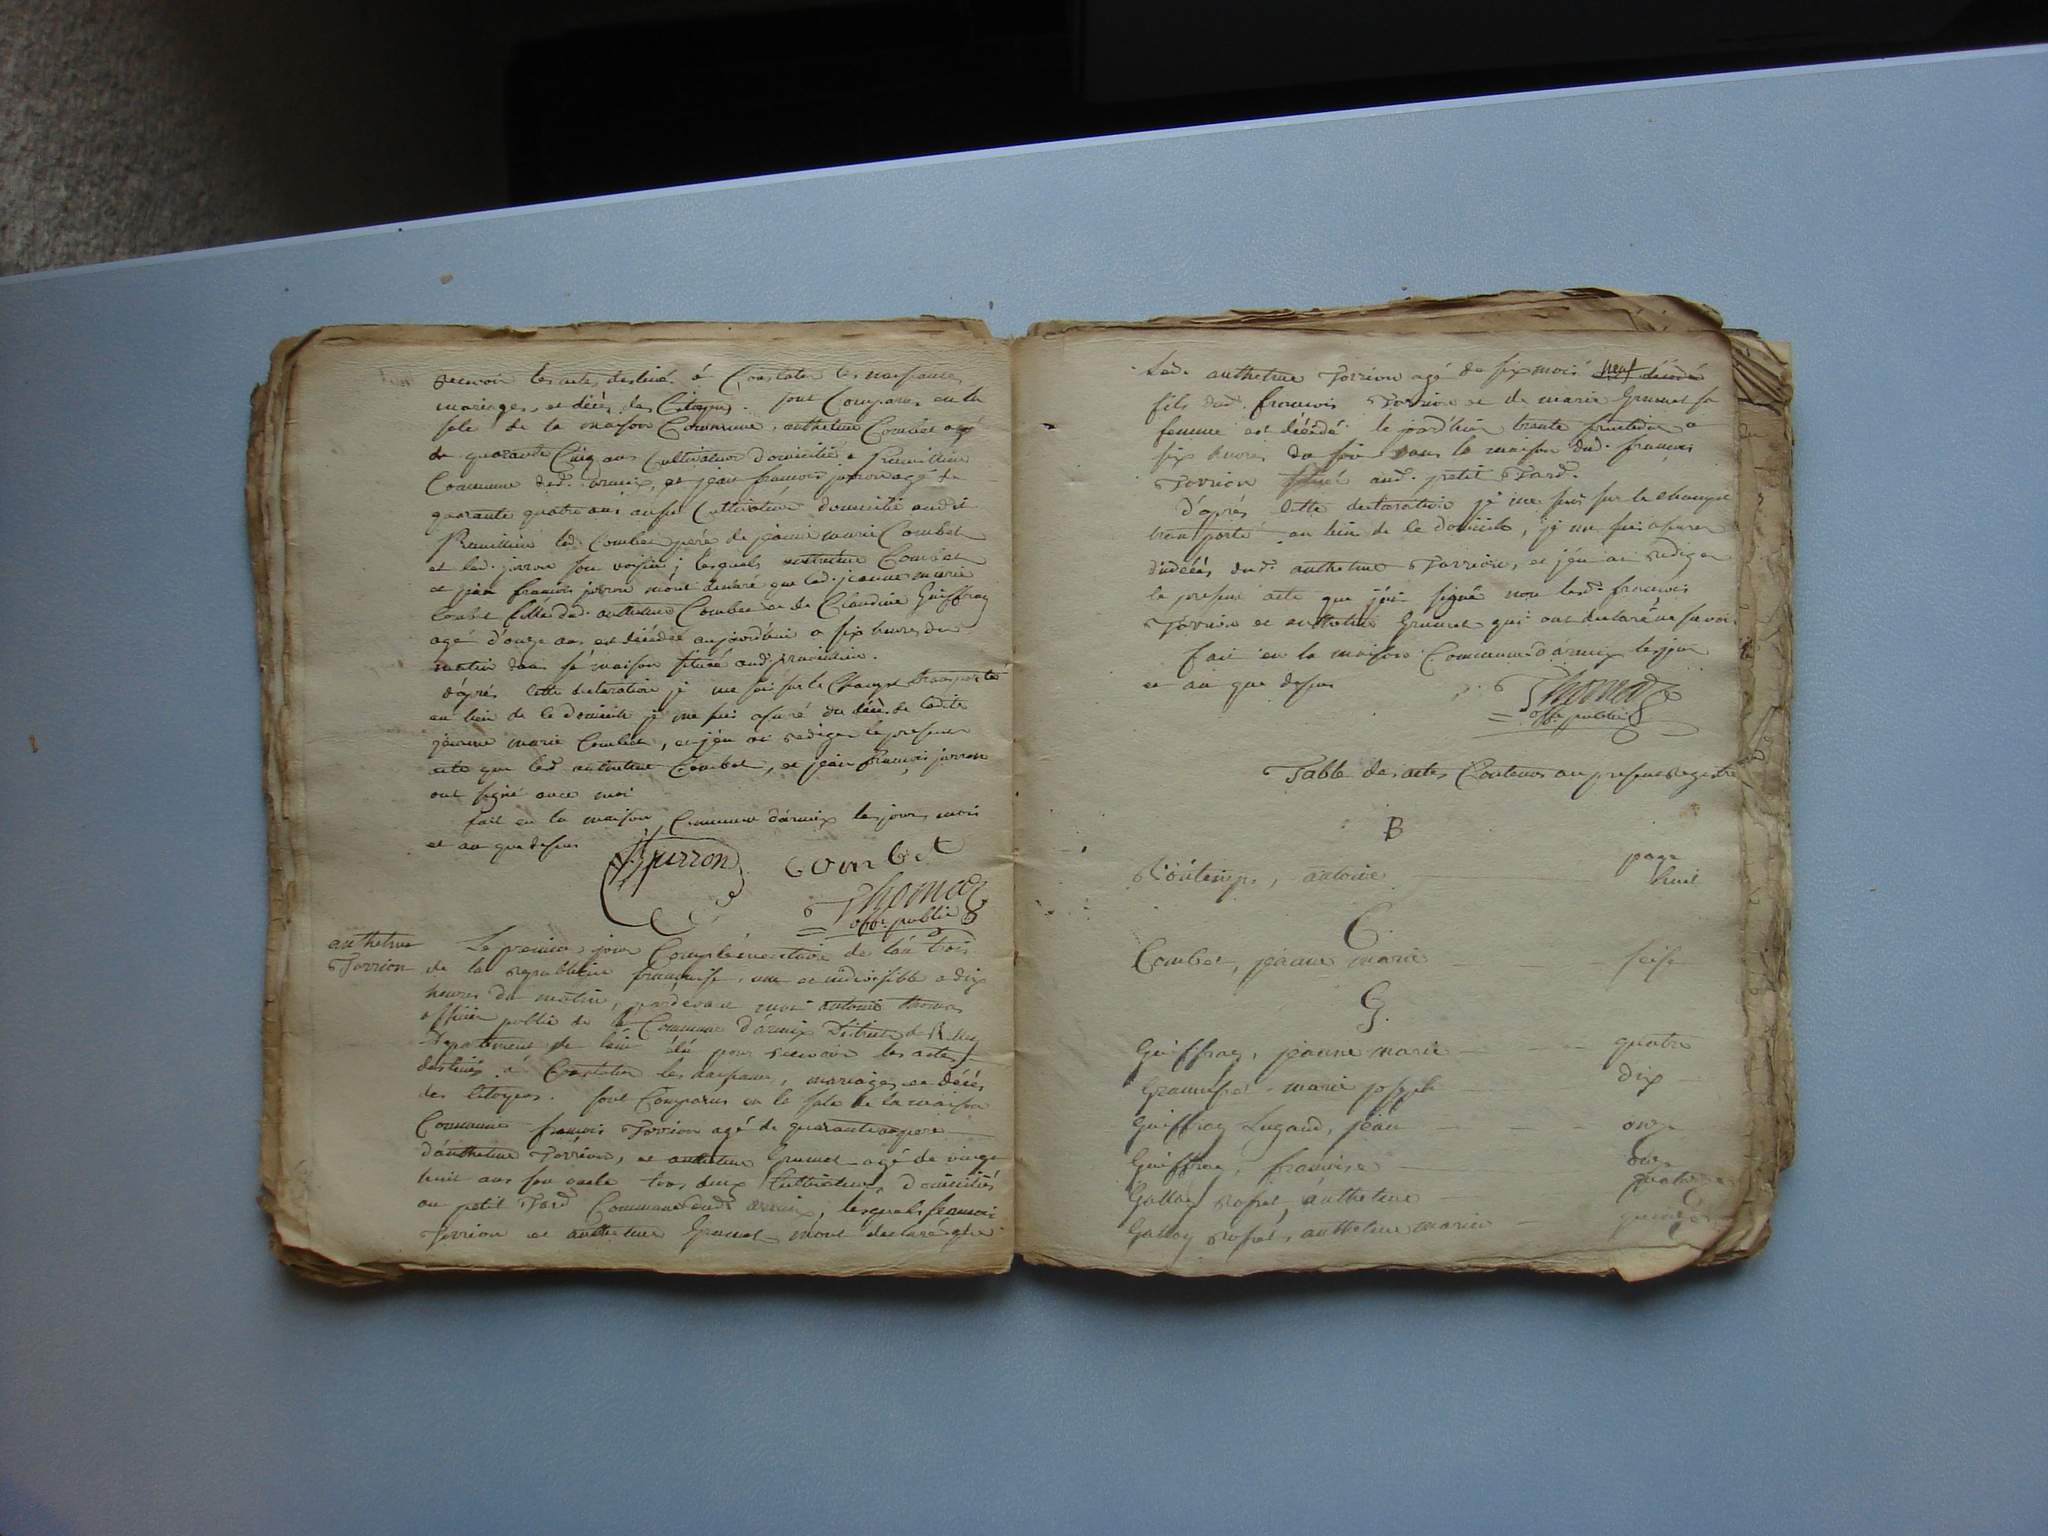 recevoir les actes destinés á Constater les naissances
mariages, et décés des Citoyens. sont Comparus en la
sale de la maison Commune, anthelme Combet agé
de quarante Cinq ans Cultivateur domicilié a
Commune dud. armix, et jean françois jurron agé de
quarante quatre ans aussi Cultivateur domicilié audit
led. Combet pere de jeanne marie Combet
et led. jurron son voisin; lesquels anthelme Combet
et jean françois jurron m'ont declaré que lad. jeanne marie
Combet fille dud. anthelme Combet et de Claudine Guiffray
agé d'onze ans est décédée aujourd'hui a six heures du
matin dans sa maison située aud.
d'aprés cette declaration je me suis sur le Champ transporté
au lieu de ce domicile je me suis assuré du décé de ladite
jeanne marie Combet, et j'en ai rediger le present
acte que led. anthelme Combet, et jean françois jurron
ont signé avec moi
fait en la maison Commune d'armix les jour, mois
et an que dessus
jurron Combet
Thomas
offr. public
anthelme
Torrion
Le premier jour Complémentaire de l'an trois
de la republique française, une et indivisible a dix
heures du matin, pardevant moi antoine thomas
officier public de la Commune d'armix District de Belley
Departement de l'ain élu pour recevoir les actes
destinés á Constater les naissances, mariages et décés
des Citoyens. sont Comparus en la sale de la maison
Commune françois Torrion agé de quarante ans pere
d'anthelme Torrion, et anthelme Grumet agé de vingt
huit ans son oncle tous deux Cultivateurs domiciliés
au petit Commune dud. armix, lesquels francois
Torrion et anthelme Grumet m'ont declaré que
led. anthelme Torrion agé de six mois
fils dud. françois Torrion et de marie Grumet sa
femme est décédé le jourd'hui trente fructidor a
six heures du soir dans la maison dud. françois
Torrion situé aud. petit
d'aprés cette declaration je me suis sur le champ
transporté au lieu de ce domicile, je me suis assurer
du décés dud. anthelme Torrion, et j'en ai rediger
le present acte que j'ai signé non lesd. françois
Torrion et anthelme Grumet qui ont declaré ne savoir
fait en la maison Commune d'armix les jour
et an que dessus
Thomas
offr. public
Table des actes Contenus au present registre
B
page
antoine huit
C.
Combet, jeanne marie seise
G.
Guiffray, jeanne marie quatre
marie josephe dix
Guiffray Lugand, jean onze
Guiffray, francoise onze
Gallay rosset, anthelme quatorze
Gallay rosset, anthelme marie quinze